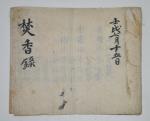 壬戌七月十五日
焚香錄